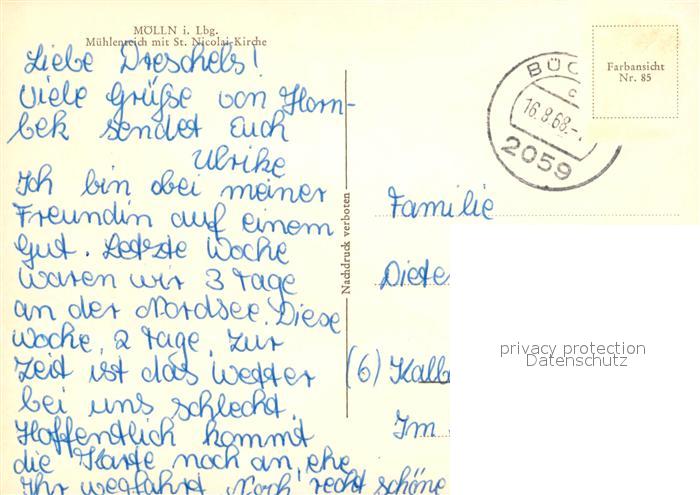 MÖLLN i. Lbg.
Mühlenteich mit St. Nicolai-Kirche
Liebe Dreschels!
Viele Grüße von Horn-
bek sendet Euch
Ulrike
Ich bin bei meiner
Freundin auf einem
Gut. Letzte Woche
waren wir 3 Tage
an der Nordsee. Diese
Woche, 2 Tage. Zur
Zeit ist das Wetter
bei uns schlecht.
Hoffentlich kommt
die Karte noch an, ehe
Ihr wegfahrt. Noch recht schöne
Nachdruck verboten
BÜC
16.8.68.-
2059
Farbansicht
Nr. 85
Familie
Diete
(6) Kalb
Im
privacy protection
Datenschutz